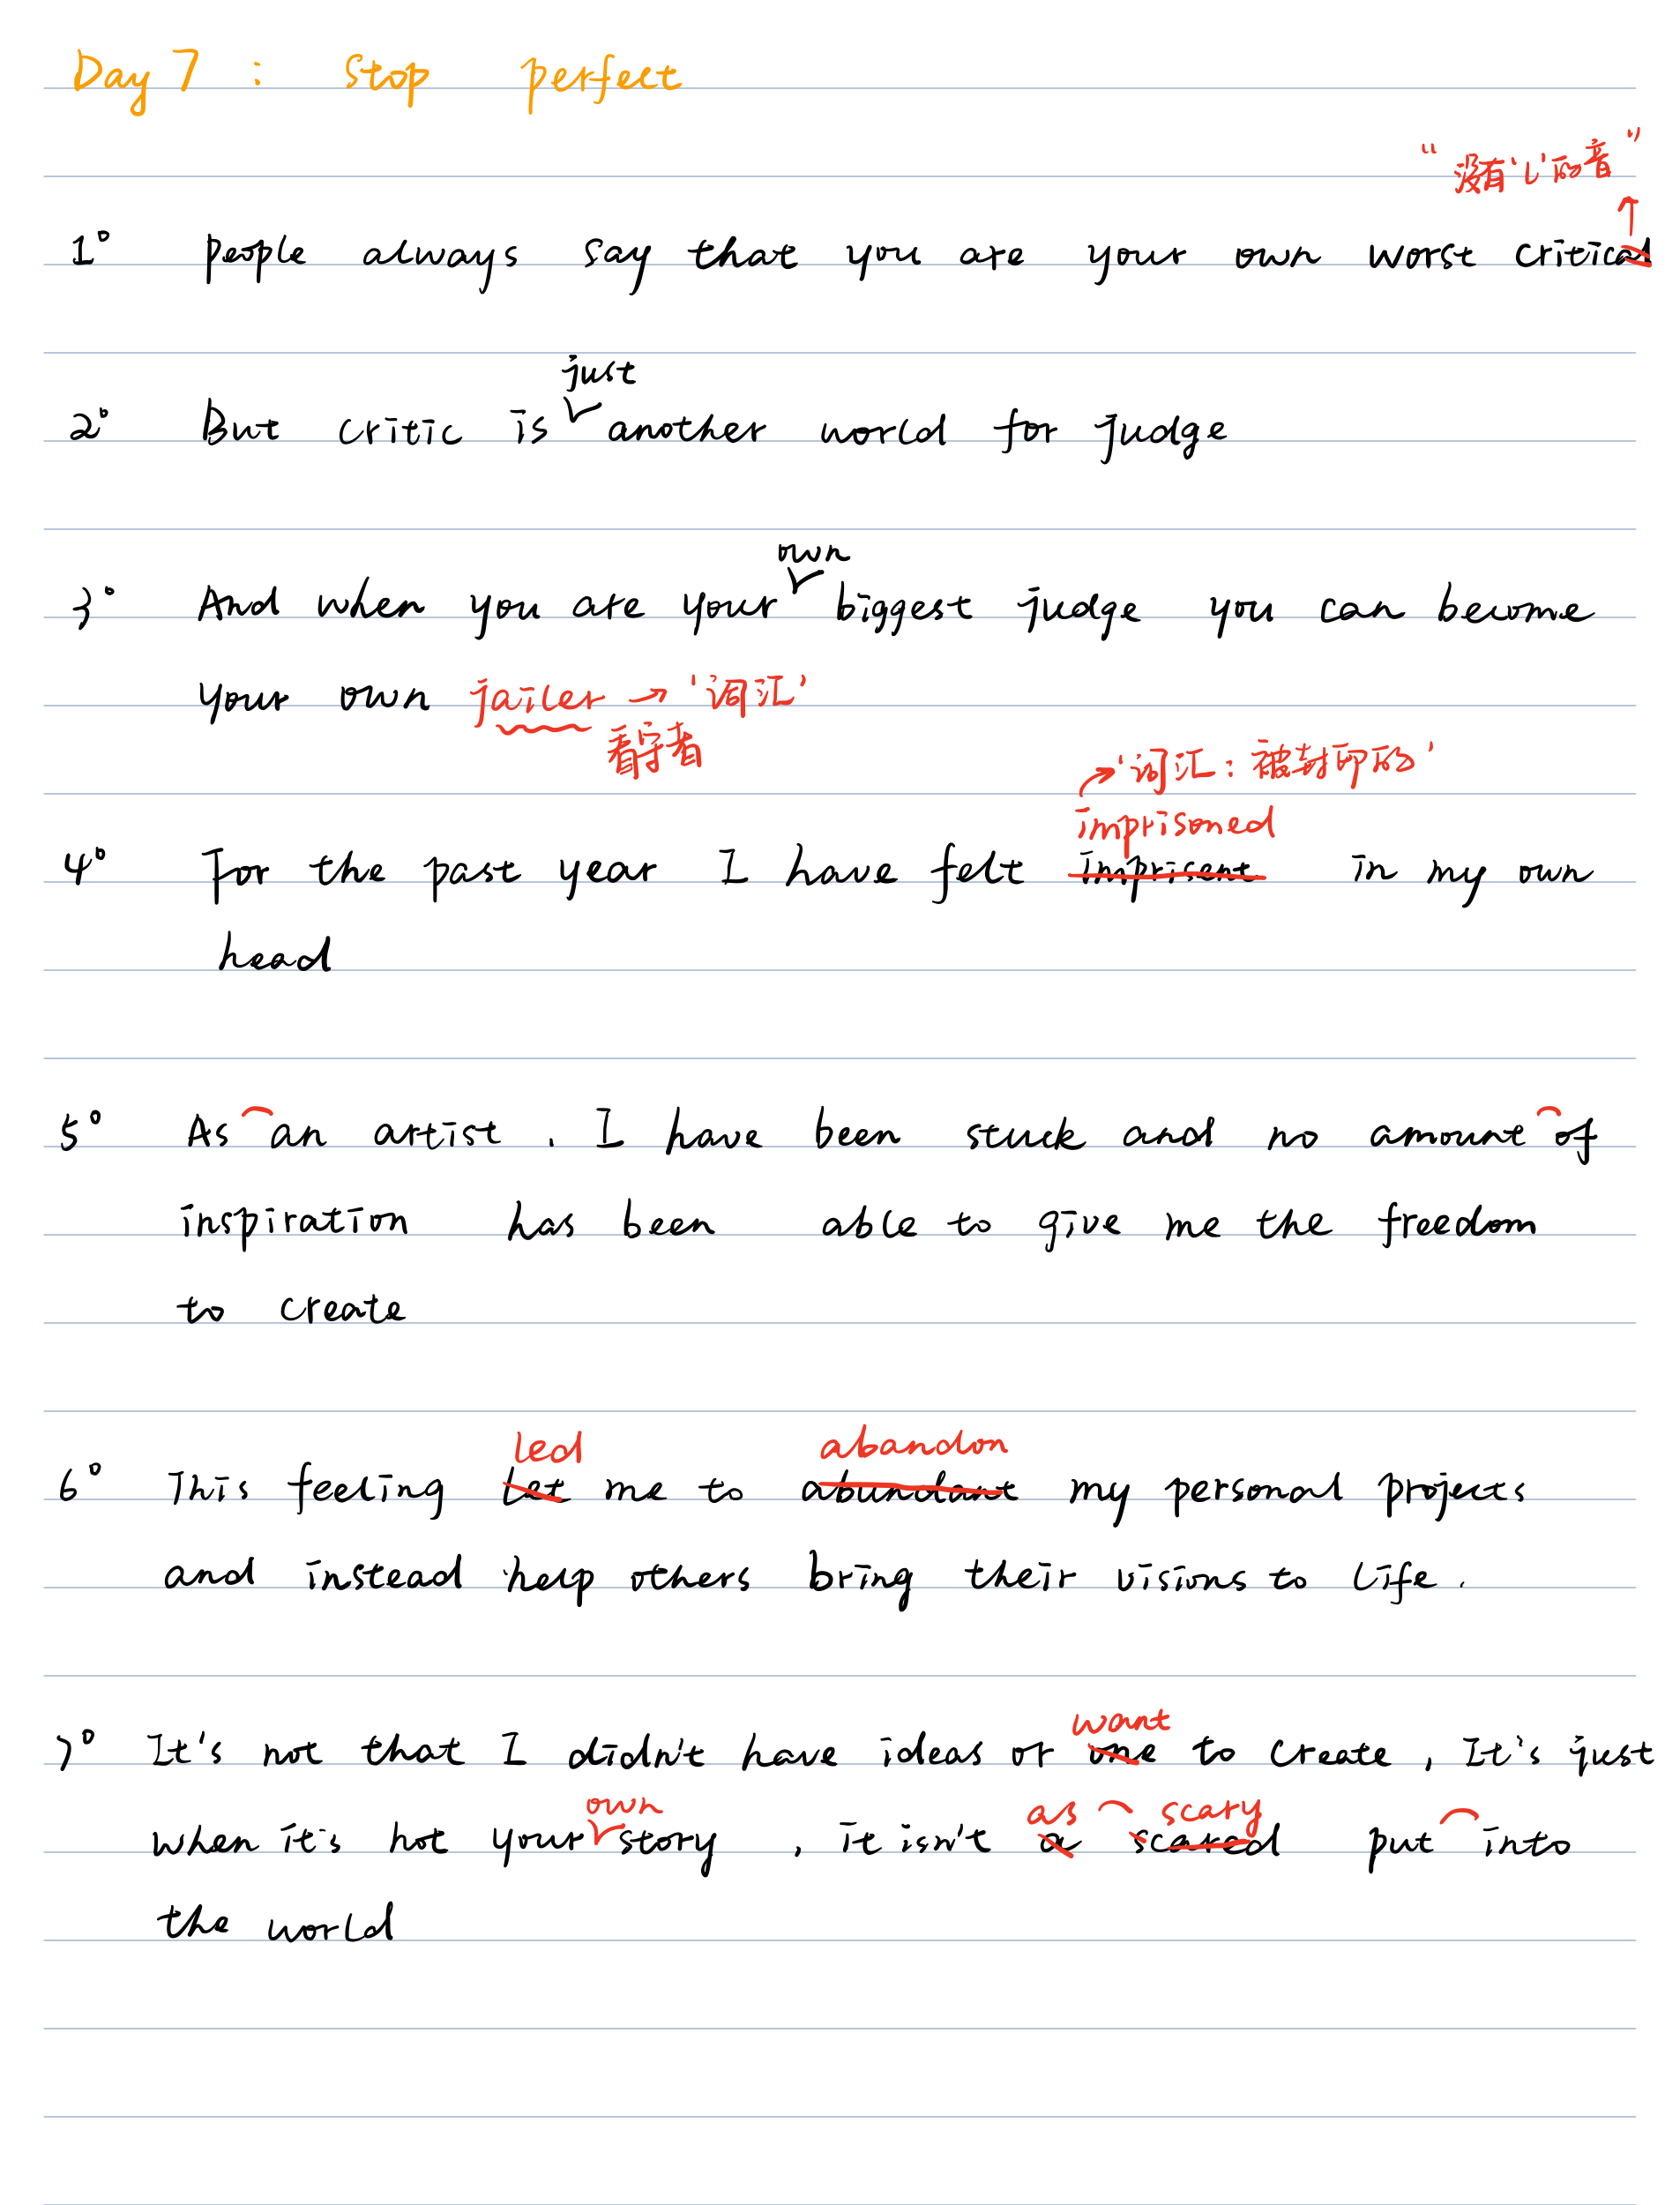 Day 7 : Stop perfect
“没有‘l’的音”
↑
1° people always say that you are your own worst critical
just
2° But critic is another world for judge
own
3° And when you are your biggest judge you can become
your own jailer → ‘词汇’
看守者
‘词汇：被封印的’
imprisoned
4° For the past year I have felt imprisent in my own
head
5° As an artist, I have been stuck and no amount of
inspiration has been able to give me the freedom
to create
led abandon
6° This feeling let me to abundant my personal projects
and instead help others bring their visions to life.
want
7° It's not that I didn't have ideas or one to create, It's just
own as scary
when it's not your story, it isn't a scared put into
the world